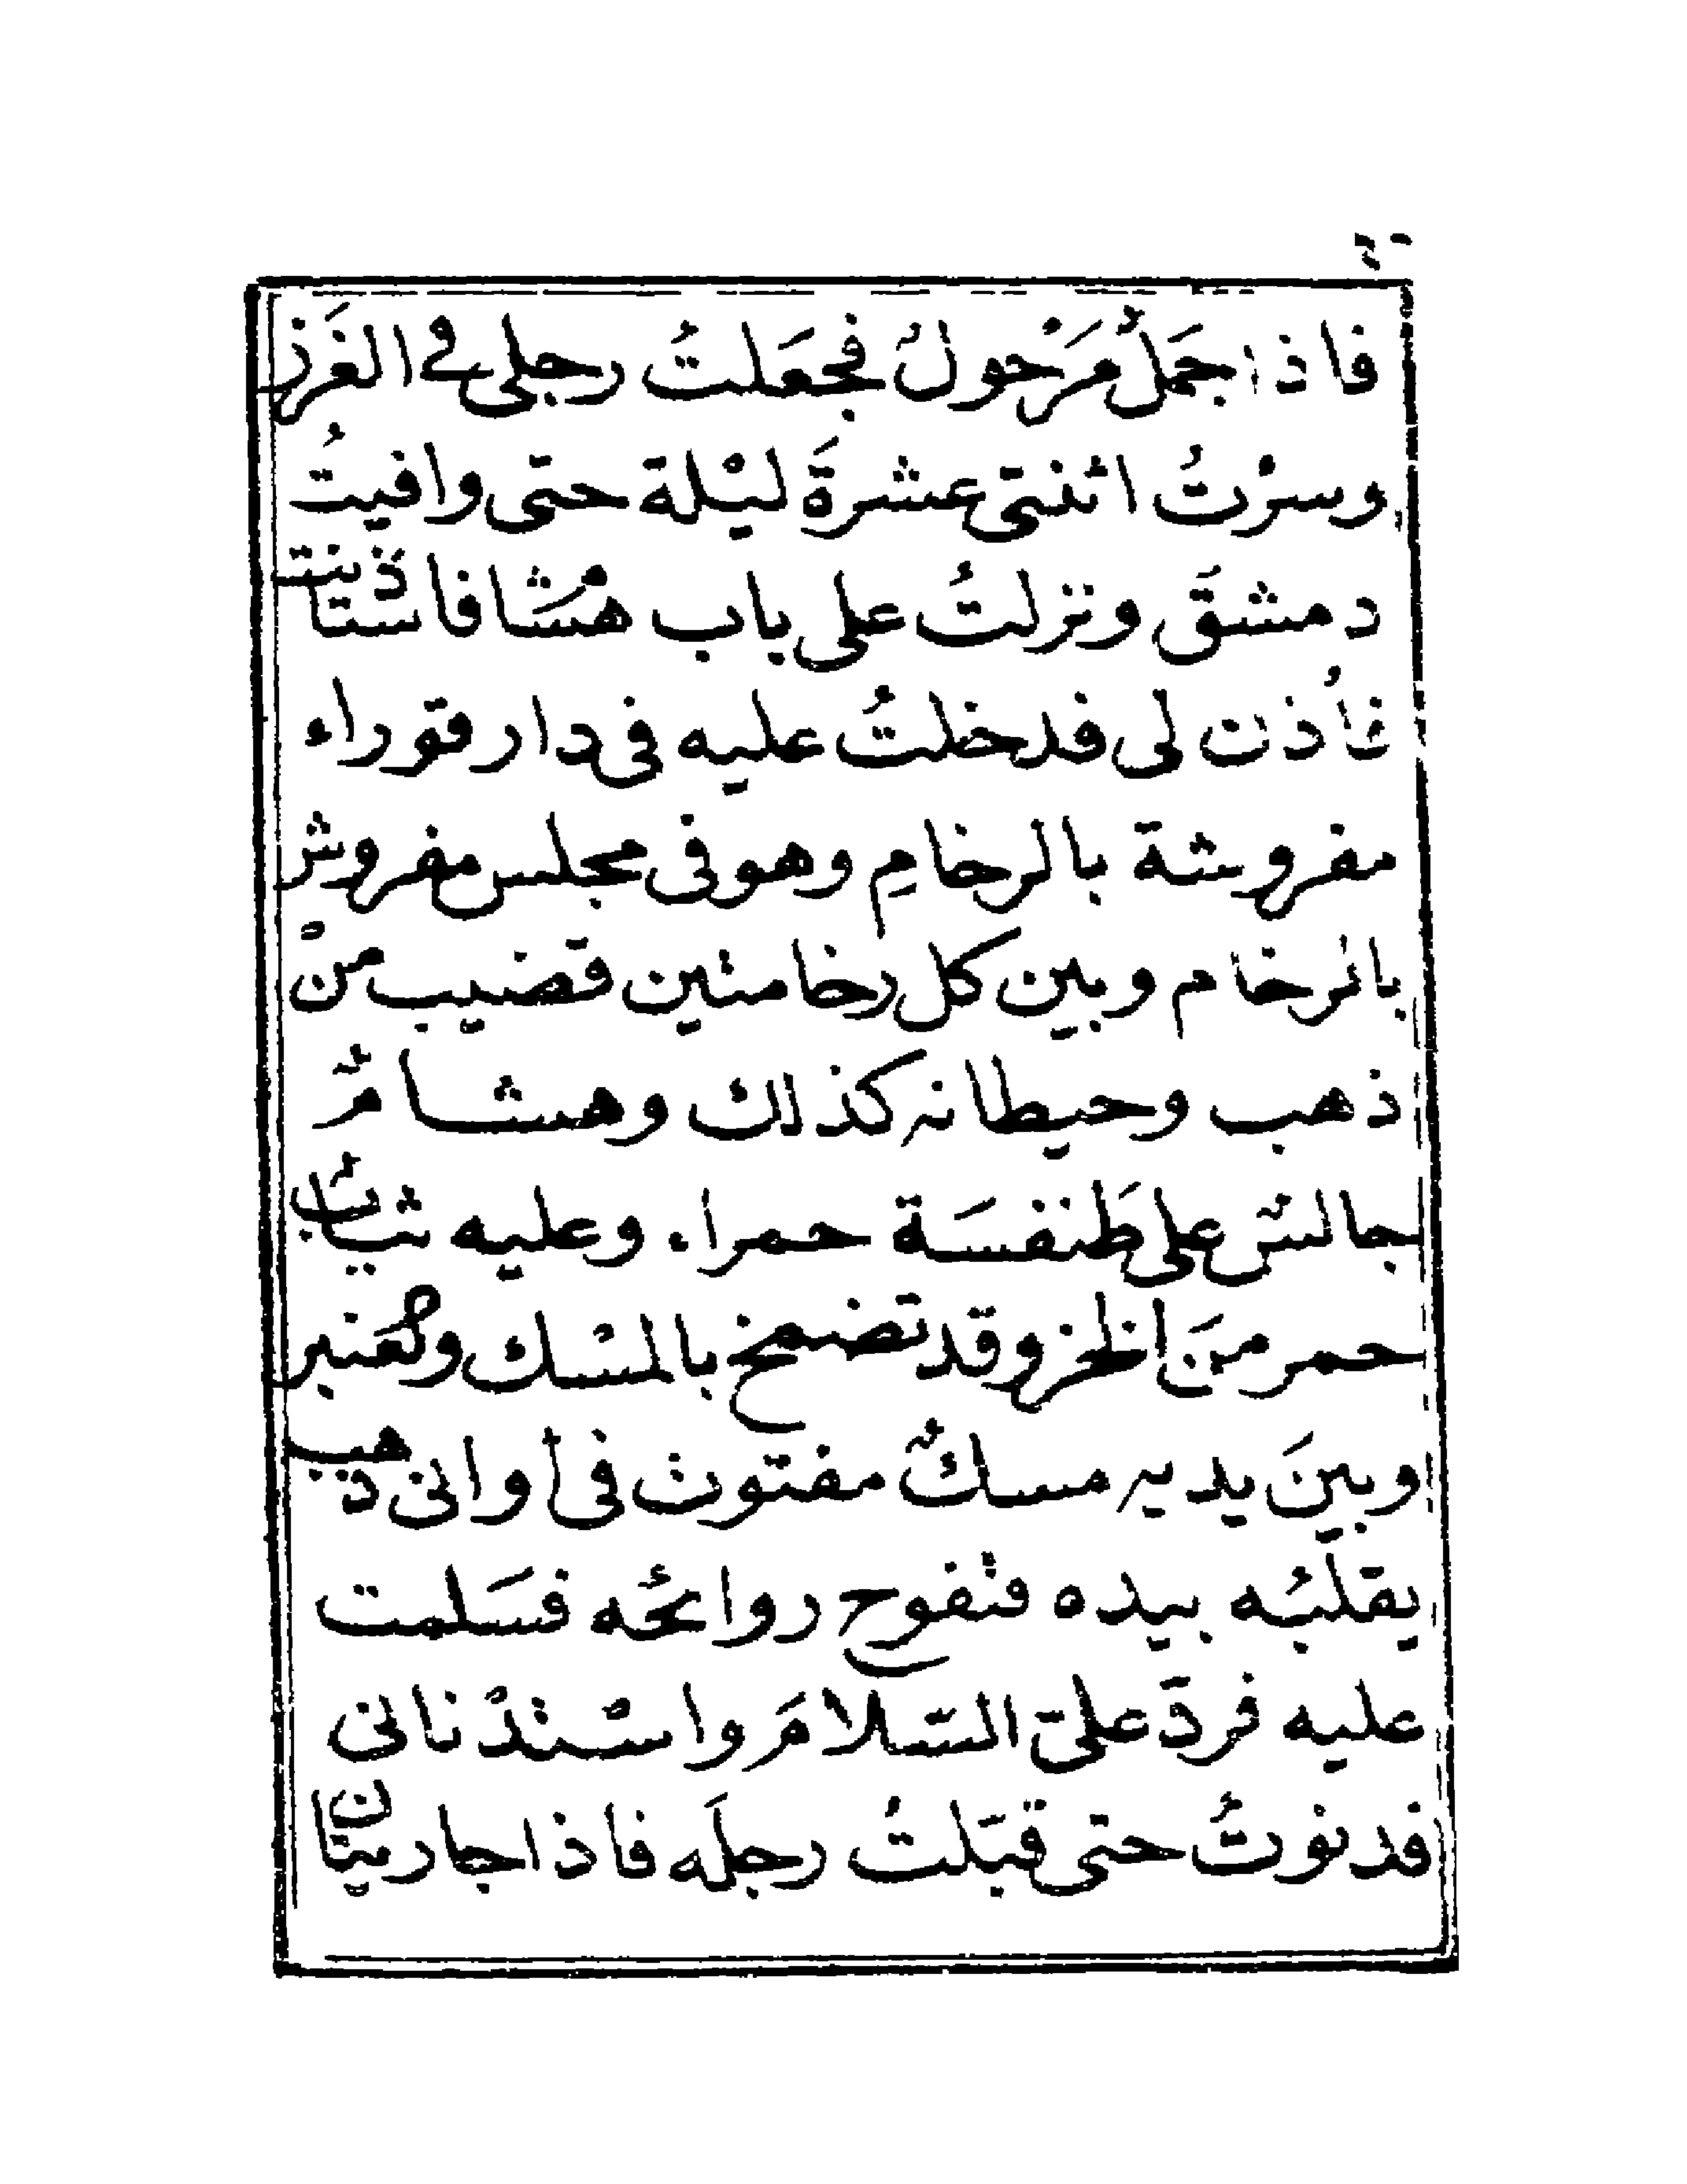 فاذا جَمَلٌ مَرْحولٌ فجعَلتُ رجلى فى الغَرَز
وسرْتُ اثنتى عشرةَ ليْلة حتى وافيتُ
دمشقَ ونزلتُ على باب هشَام فاستاذنت
فأُذن لى فدخلتُ عليه فى دار قوراء
مفروشة بالرخامِ وهو فى مجلس مفروش
بالرخام وبين كل رخامتين قضيب منْ
ذهب وحيطانه كذلك وهشامٌ
جالسٌ على طَنفسَة حمراء وعليه ثيابٌ
حمر منَ الخز وقد تضمخ بالمسْك والعَنبر
وبينَ يديه مسكٌ مفتوت فى أوانى ذهب
يقلبُه بيده فتْفوح روائحُه فسَلمت
عليه فردَّ علىَّ السَّلامَ واسْتدْنانى
فدنوتُ حتى قبَّلتُ رجلَه فاذا جاريتان